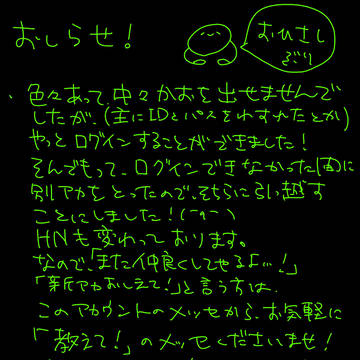 おしらせ！
おひさし
ぶり
・色々あって、中々かおを出せませんで
したが、(主にIDとパスをわすれたとか)
やっとログインすることができました！
そんでもって、ログインできなかった間に
別アカをとったので、そちらに引っ越す
ことにしました！(¬ヘ¬)
HNも変わっております。
なので、「また仲良くしてやるよ…！」
「新アカおしえて！」と言う方は、
このアカウントのメッセから、お気軽に
「教えて！」のメッセくださいませ！